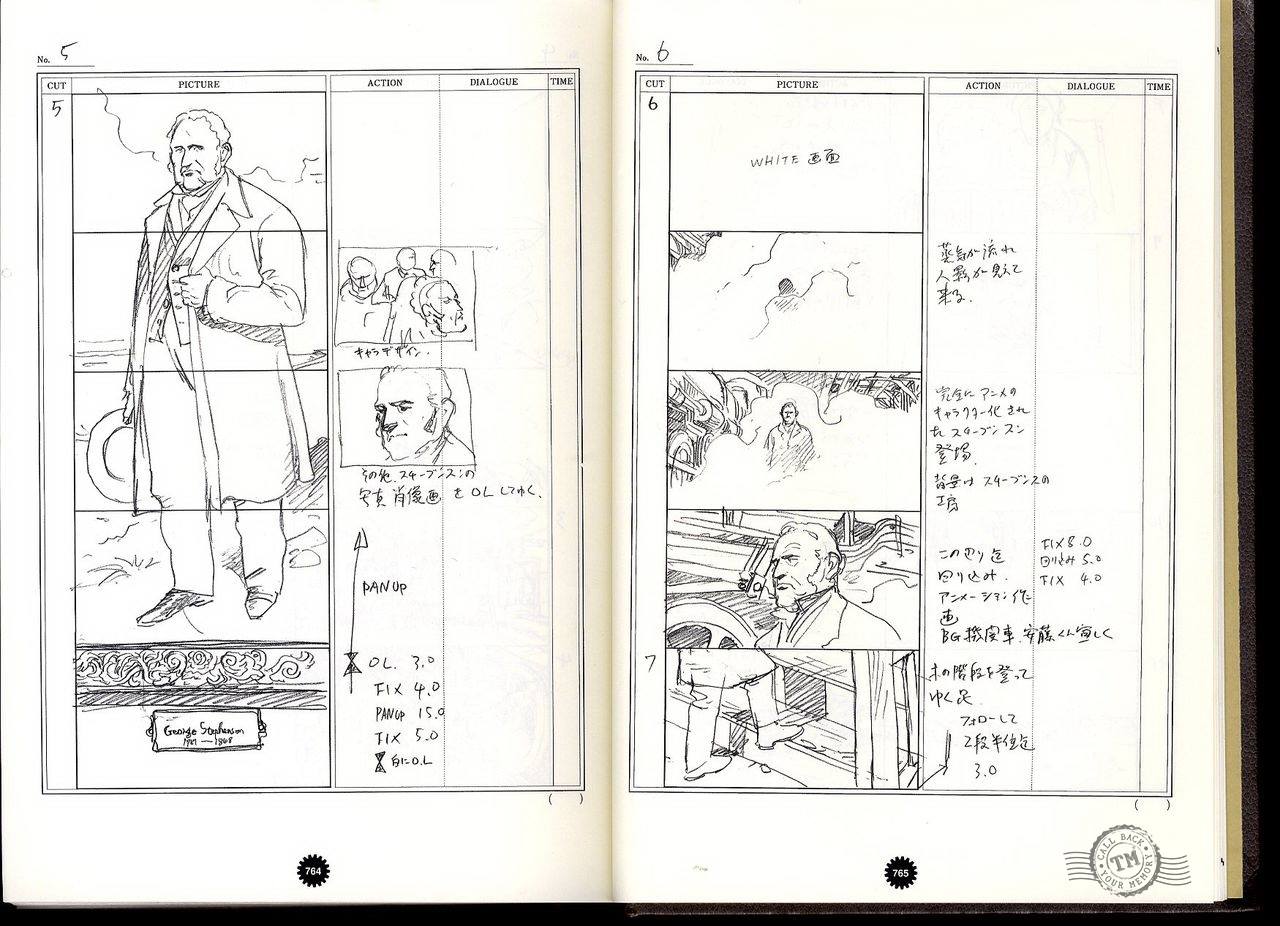 No. 5
CUT
PICTURE
ACTION
DIALOGUE
TIME
5
キャラデザイン.
その他. スチーブンスンの
写真 肖像画 を OL してゆく.
PAN UP
OL. 3.0
FIX 4.0
PAN UP 15.0
FIX 5.0
白にO.L
George Stephenson
( )
764
No. 6
CUT
PICTURE
ACTION
DIALOGUE
TIME
6
WHITE 画面
蒸気が流れ
人影が見えて
来る.
完全にアニメの
キャラクター化され
た スチーブンスン
登場.
背景は スチーブンスの
工房
この辺り迄
回り込み.
アニメーション作
画
BG 機関車. 安藤くん宜しく
FIX 8.0
回り込み 5.0
FIX 4.0
7
木の階段を登って
ゆく足.
フォローして
2段半位迄
3.0
( )
765
CALL BACK
TM
YOUR MEMORY